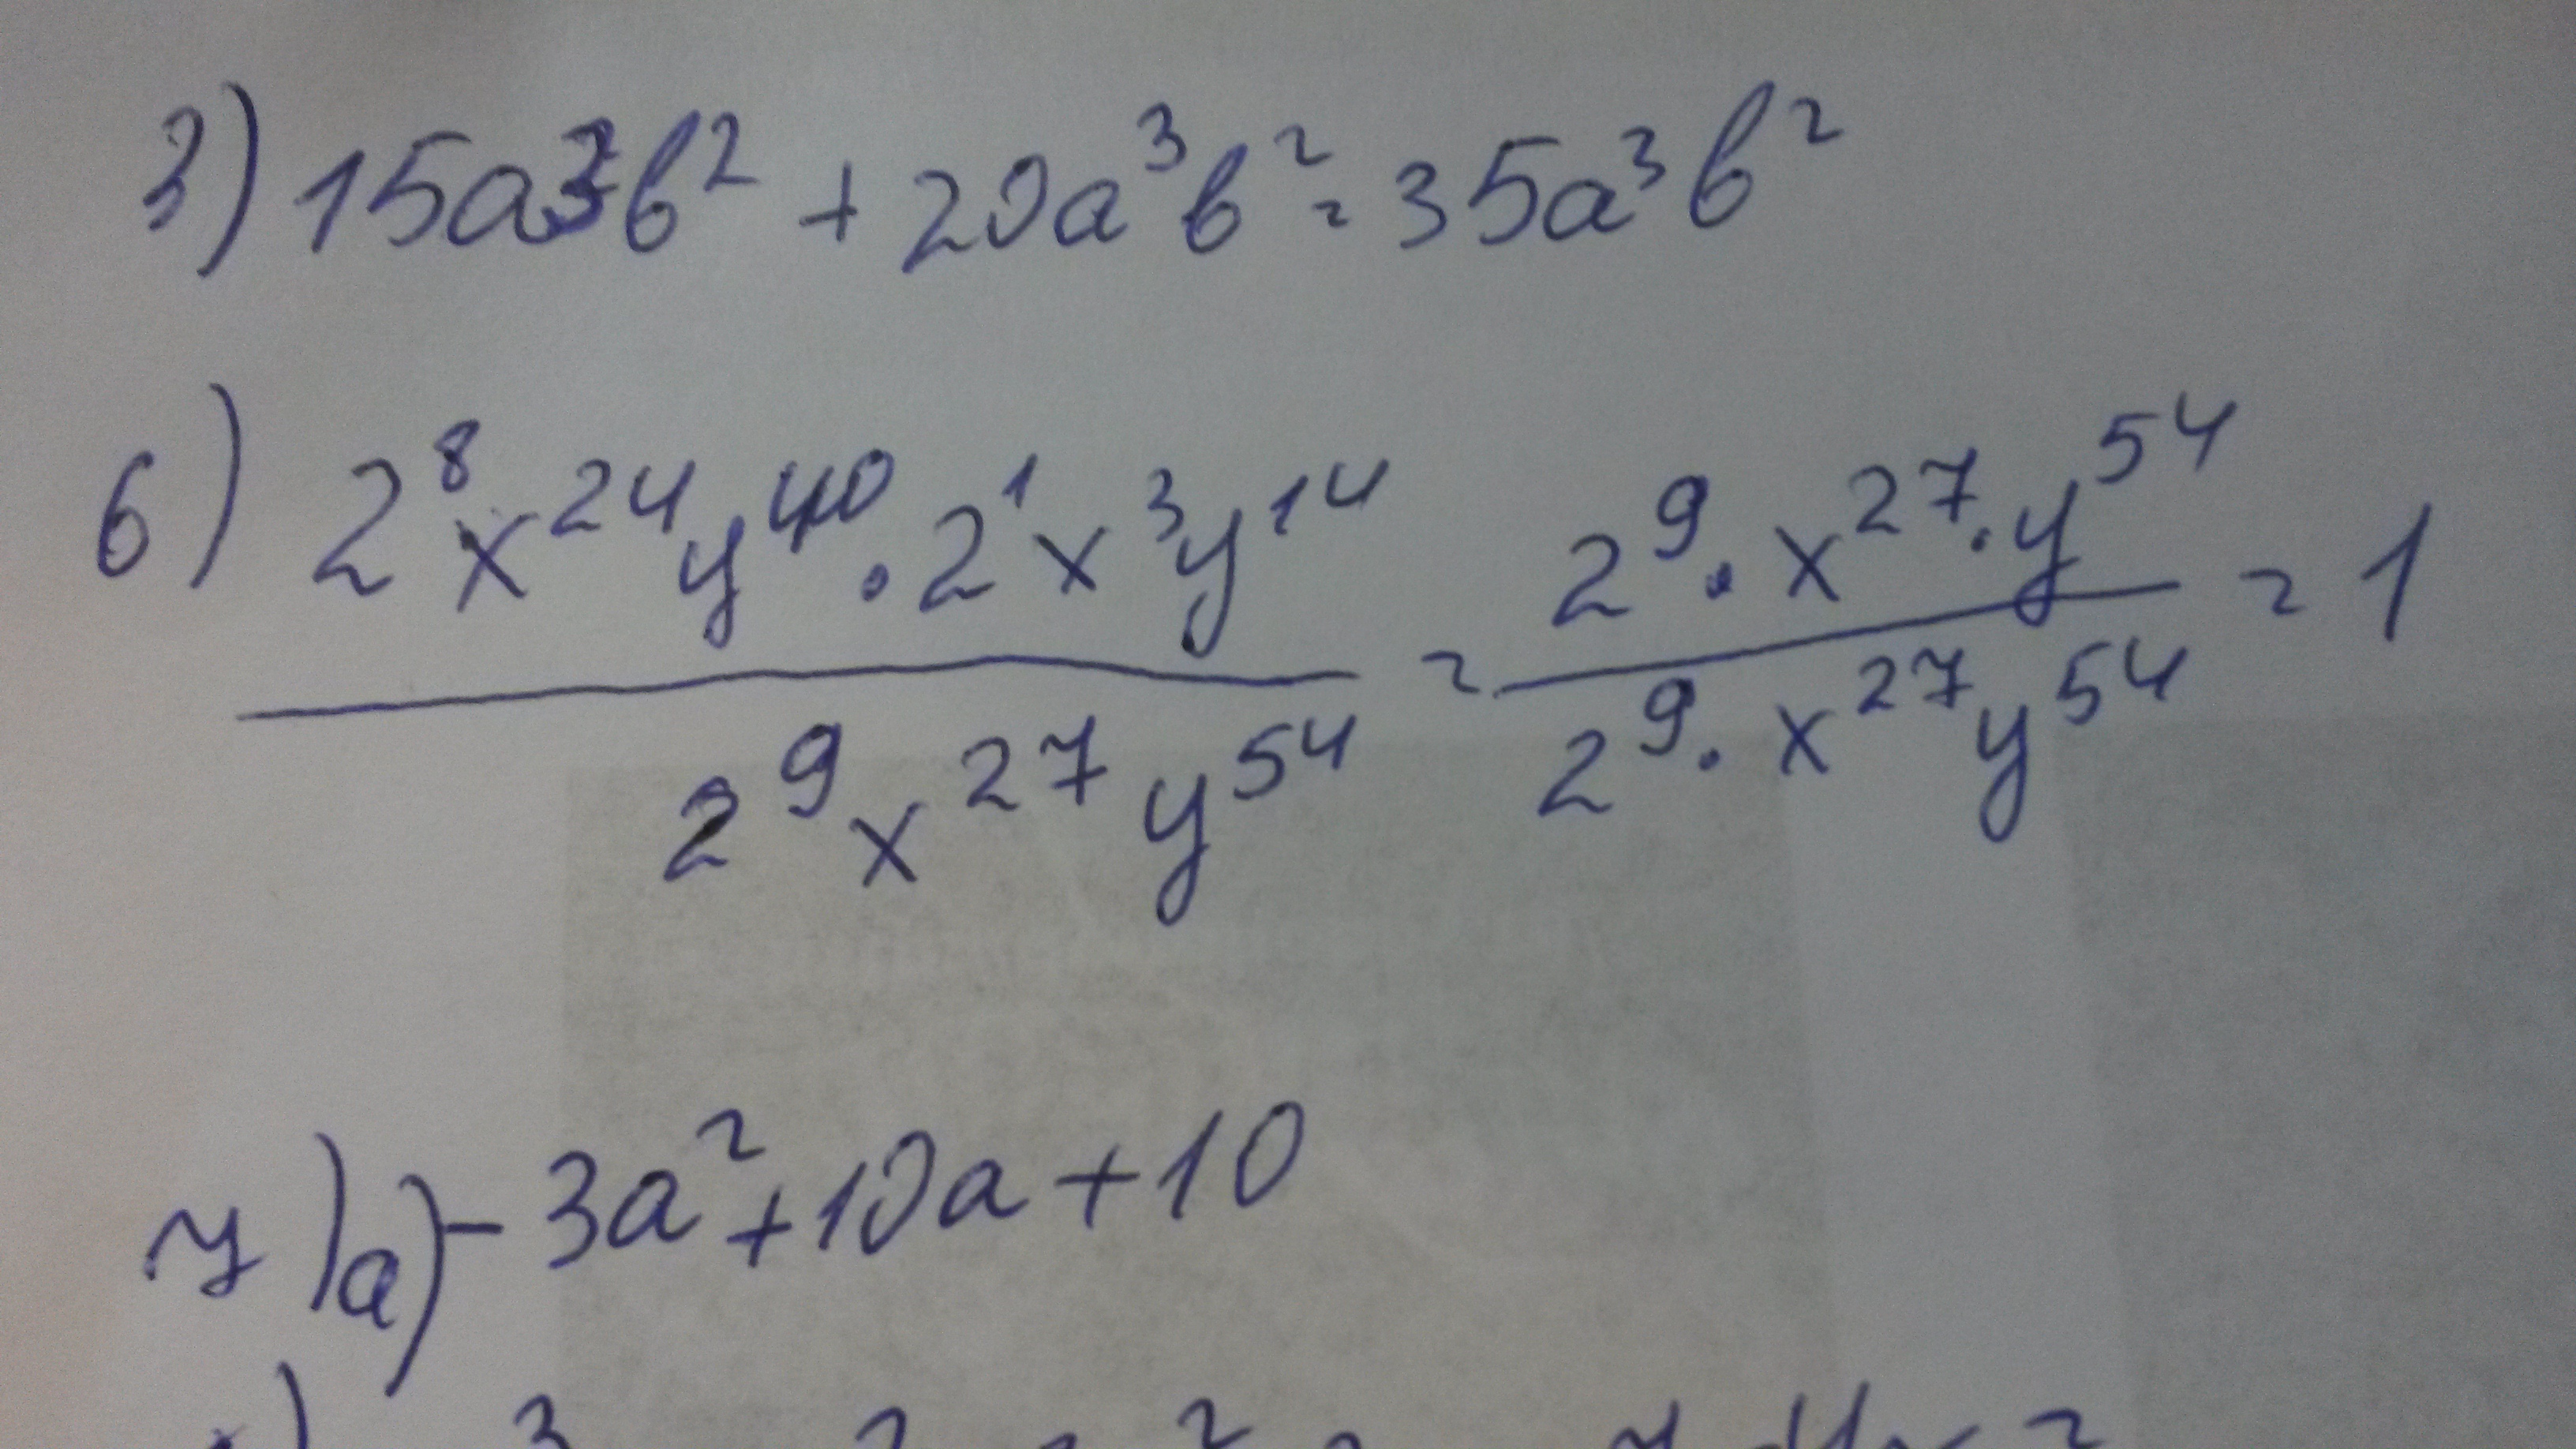 3) 15a³b² + 20a³b² = 35a³b²
6) (2⁸x²⁴y⁴⁰ · 2¹x³y¹⁴)/(2⁹x²⁷y⁵⁴) = (2⁹ · x²⁷ · y⁵⁴)/(2⁹ · x²⁷y⁵⁴) = 1
7) a) - 3a² + 10a + 10